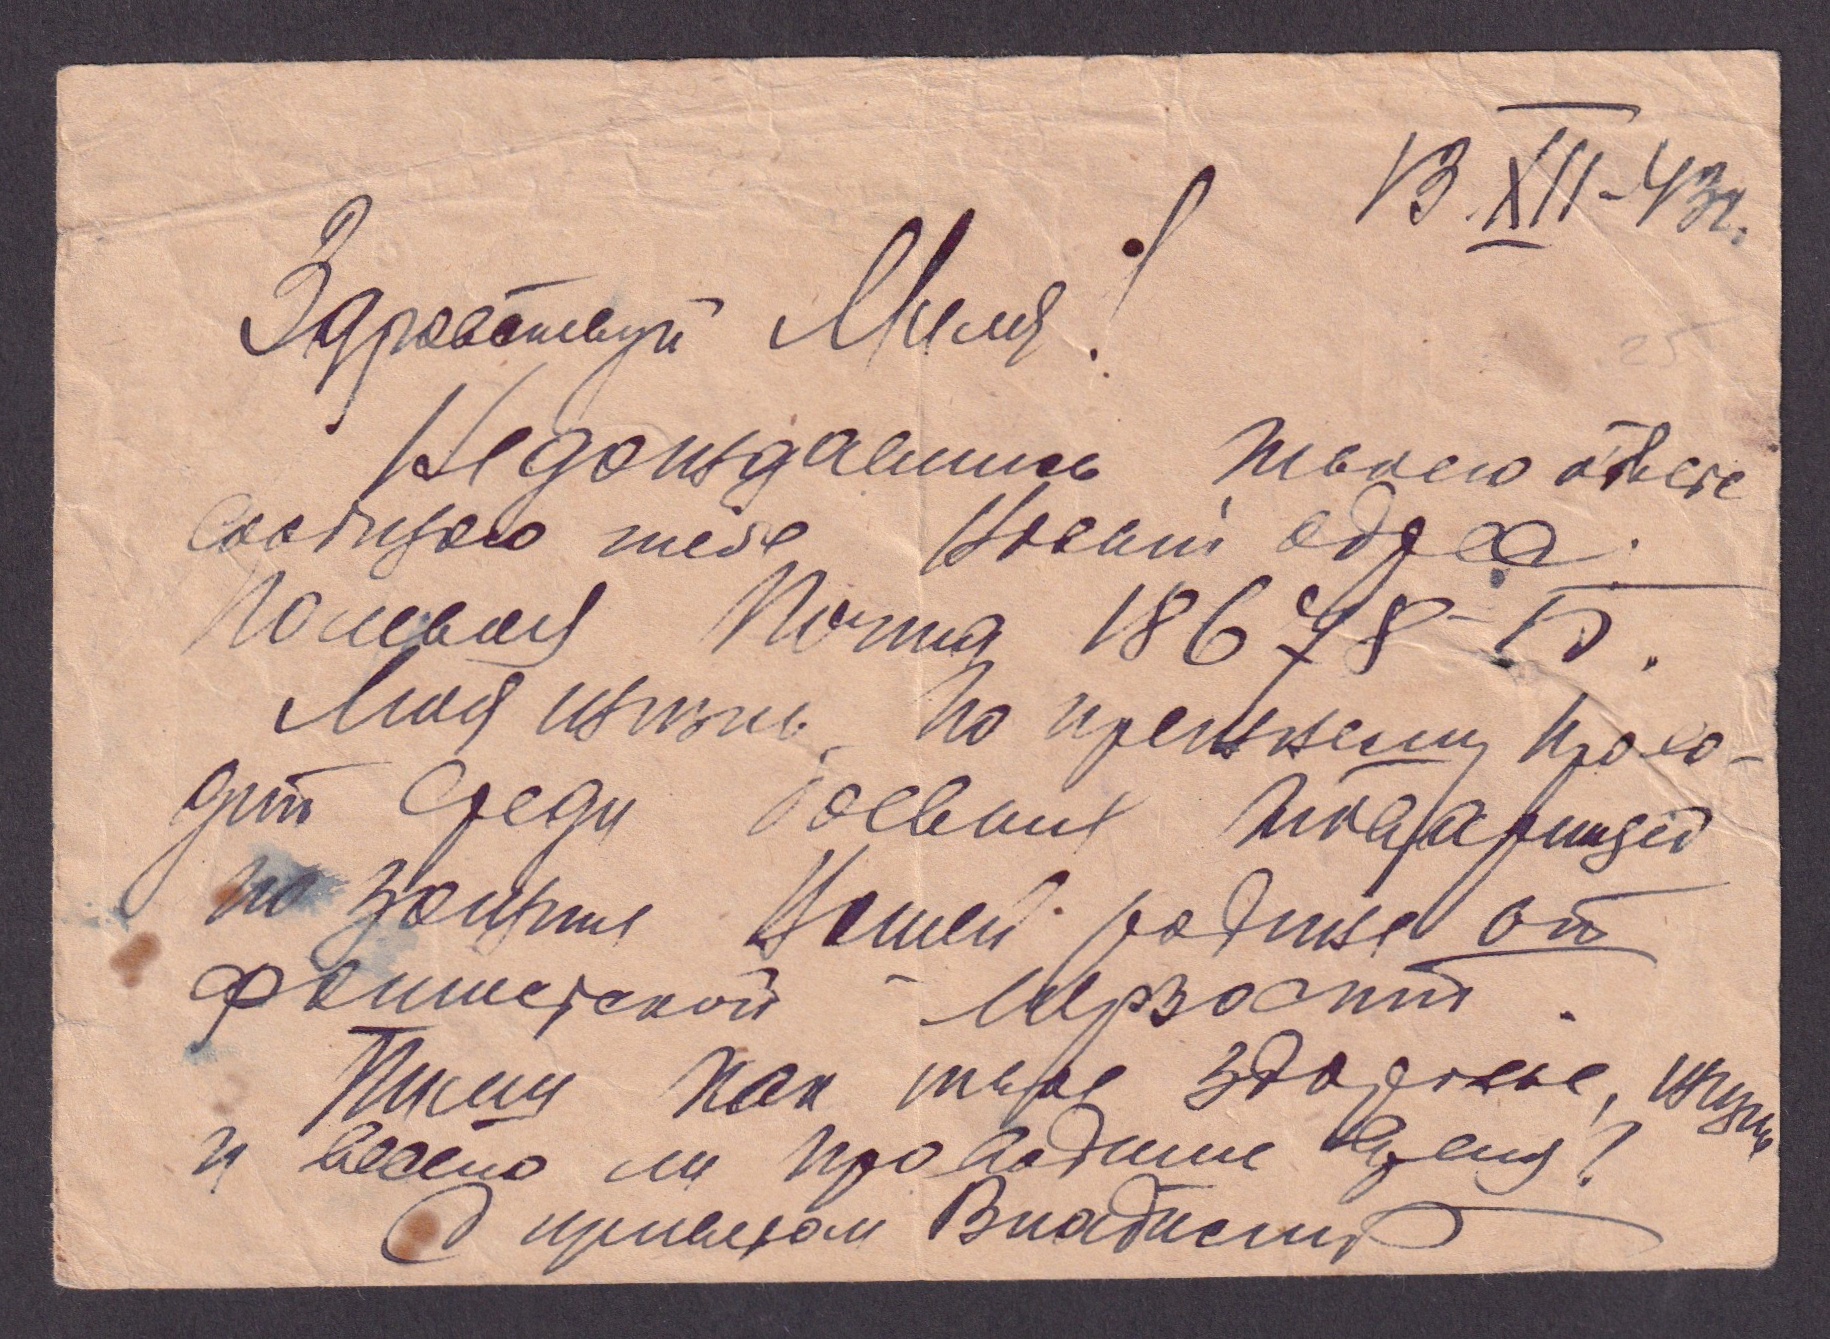 13 XII-43г.
Здравствуй Миля!
Недождавшись твоего ответа
сообщаю тебе Новый адрес.
Полевая Почта 18678-Б.
Моя жизнь по прежнему прохо-
дит среди боевых товарищей
по защите Нашей родине от
фашистской мерзости.
Пиши как твое здоровье, жизнь
и весело ли проводишь время?
С приветом Владислав